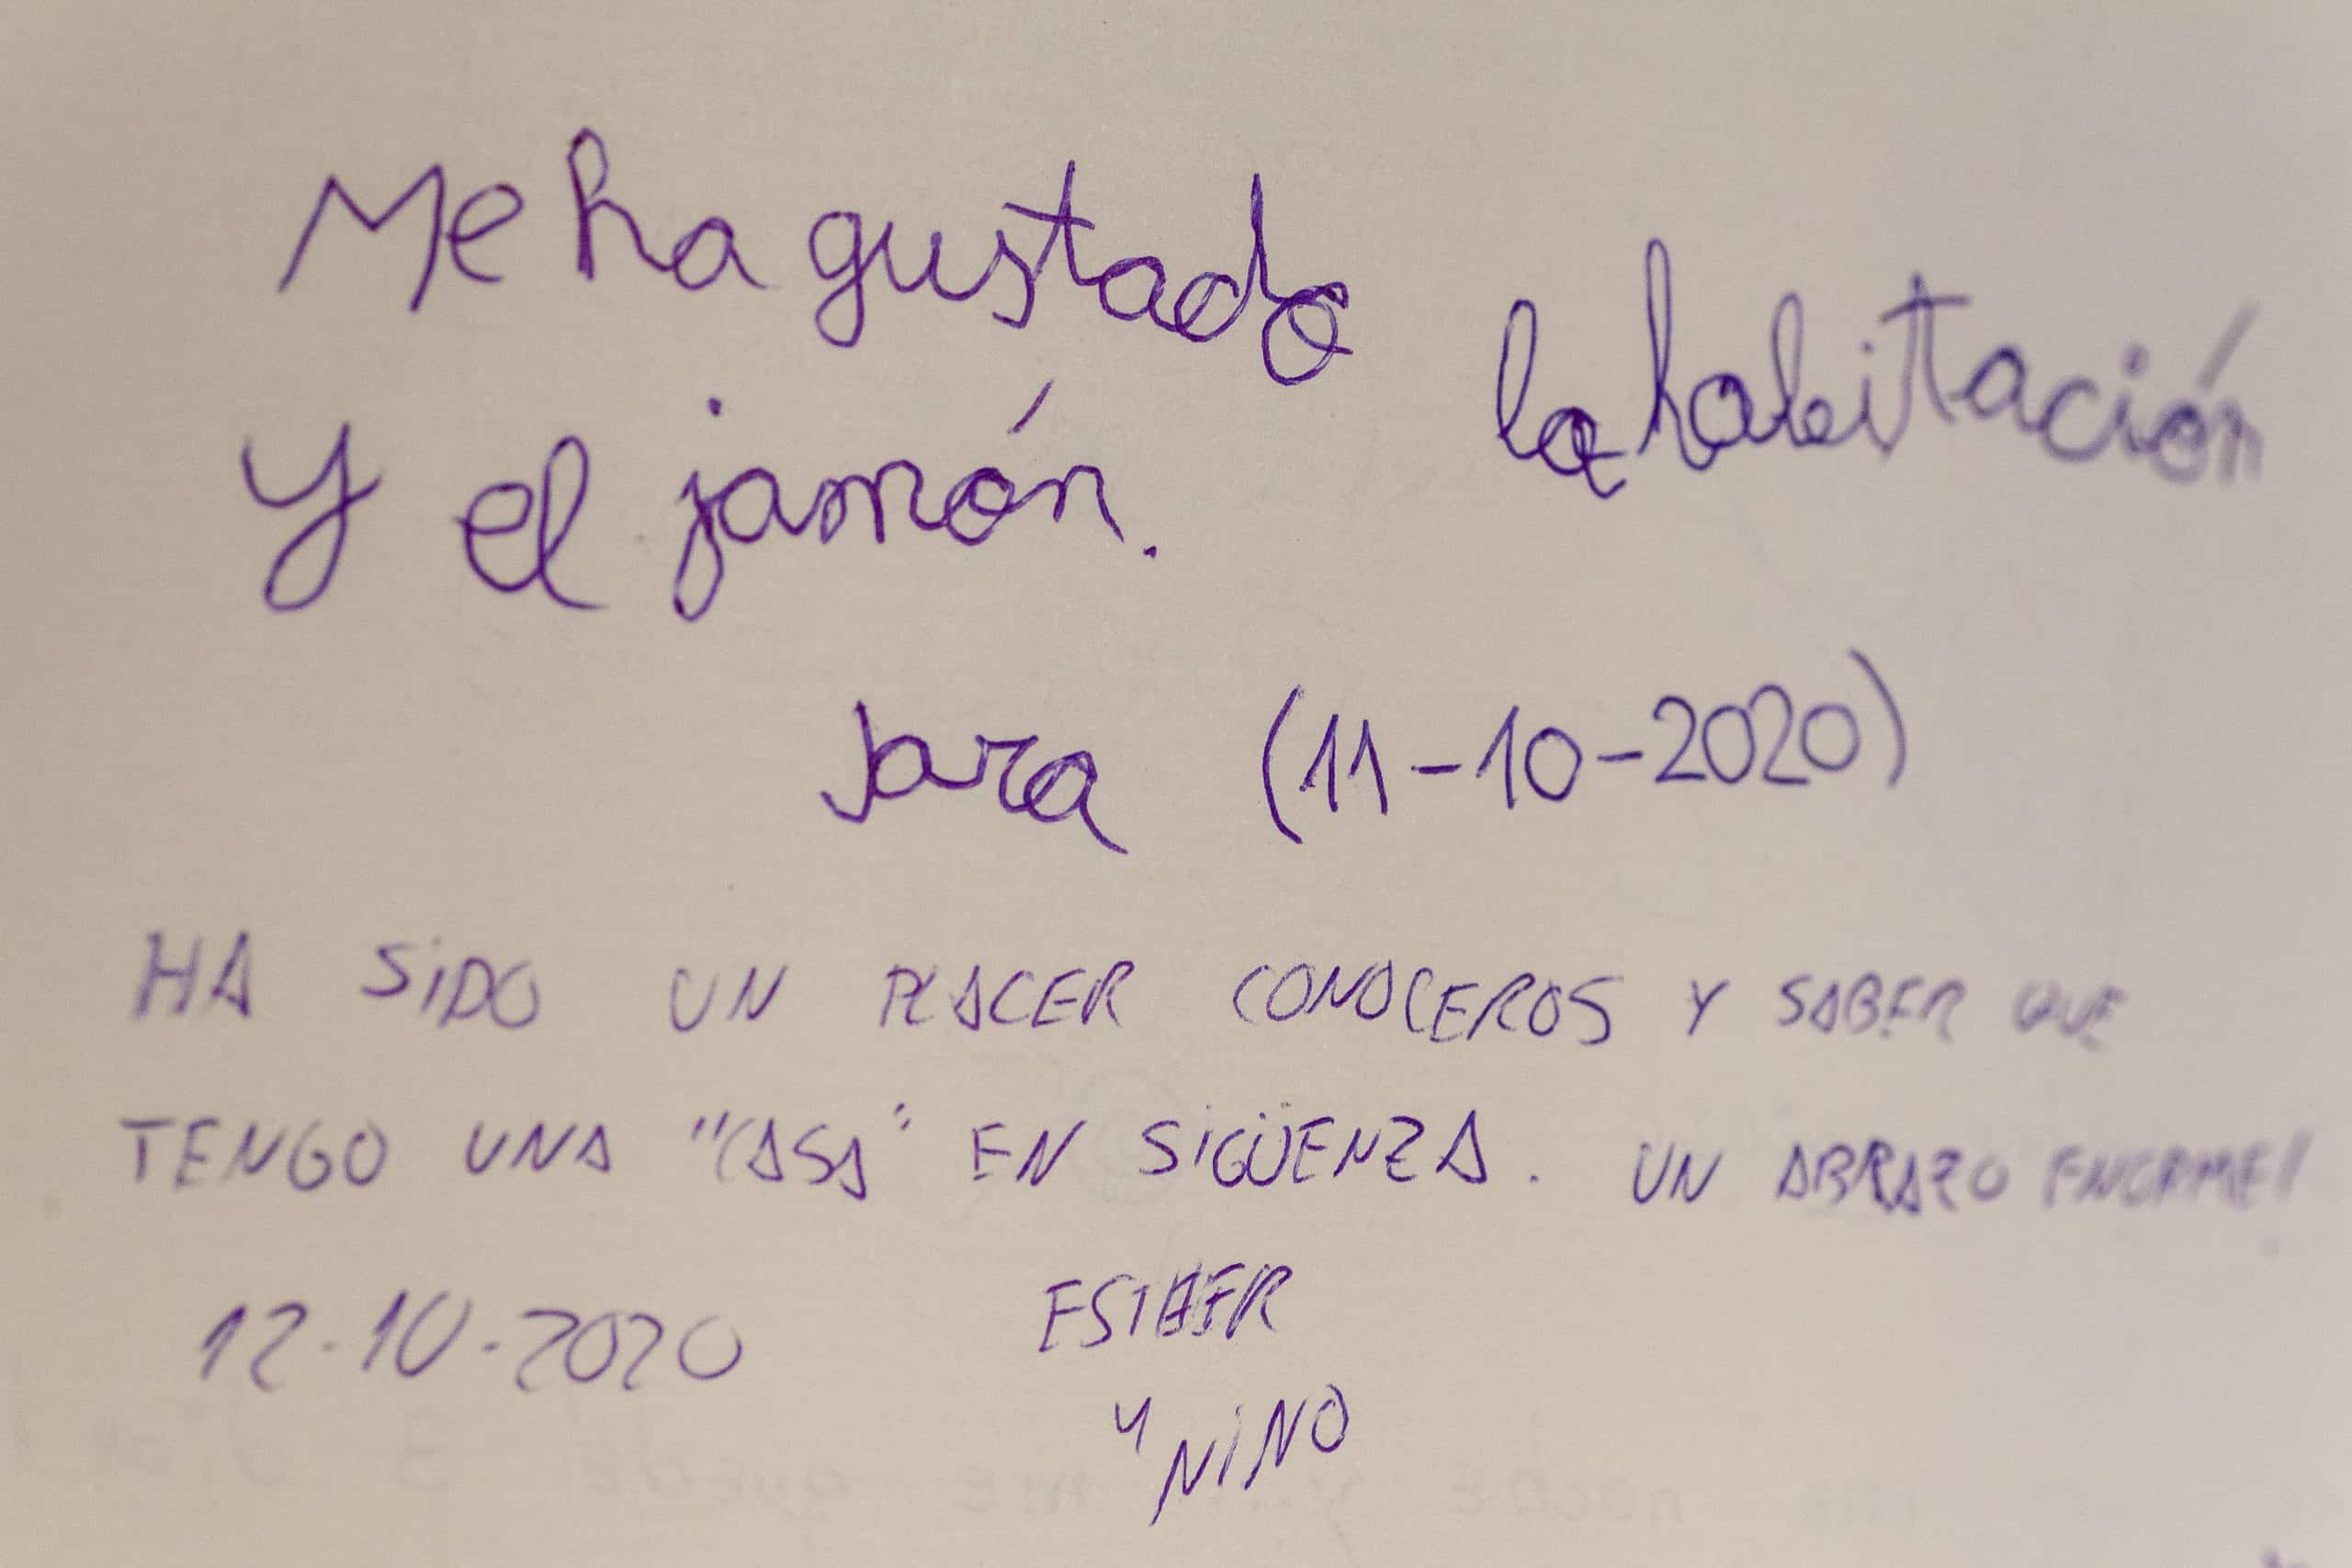 Me ha gustado la habitación
y el jamón.
Jara (11-10-2020)
HA SIDO UN PLACER CONOCEROS Y SABER QUE
TENGO UNA "CASA" EN SIGÜENZA. UN ABRAZO ENORME!
12-10-2020
ESTHER
y NINO